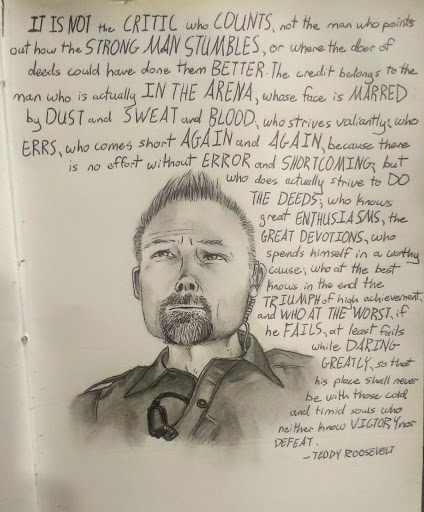 IT IS NOT the CRITIC who COUNTS, not the man who points
out how the STRONG MAN STUMBLES, or where the doer of
deeds could have done them BETTER. The credit belongs to the
man who is actually IN THE ARENA, whose face is MARRED
by DUST and SWEAT and BLOOD, who strives valiantly; who
ERRS, who comes short AGAIN and AGAIN, because there
is no effort without ERROR and SHORTCOMING; but
who does actually strive to DO
THE DEEDS; who knows
great ENTHUSIASMS, the
GREAT DEVOTIONS, who
spends himself in a worthy
cause; who at the best
knows in the end the
TRIUMPH of high achievement,
and WHO AT THE WORST, if
he FAILS, at least fails
while DARING
GREATLY, so that
his place shall never
be with those cold
and timid souls who
neither know VICTORY nor
DEFEAT.
-TEDDY ROOSEVELT